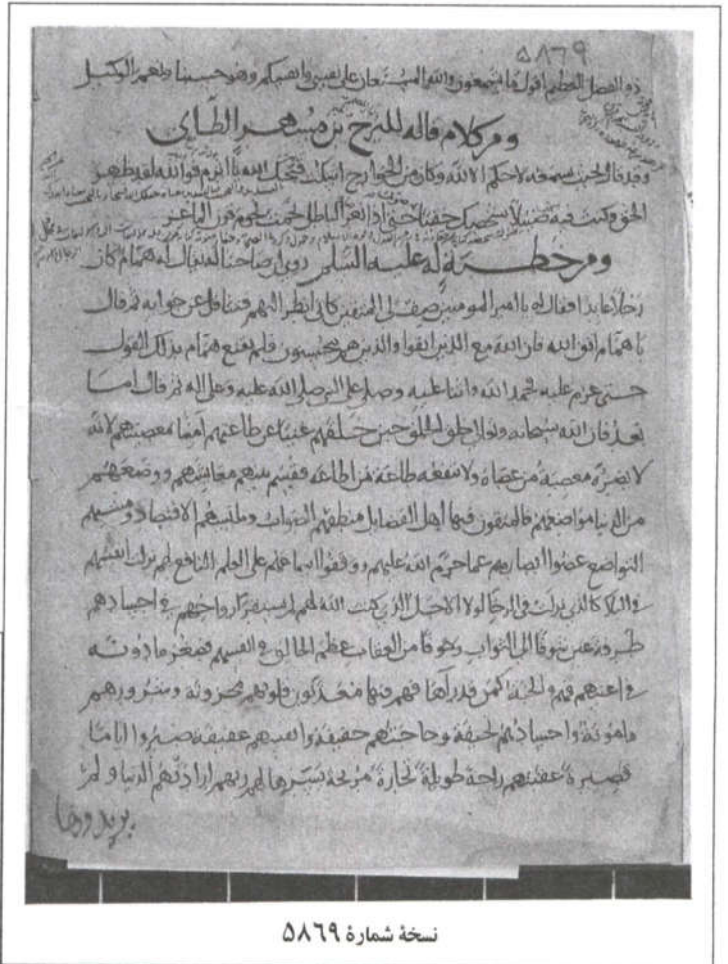 ۵۸۶۹
ذو الفضل العظيم اقول ما تسمعون والله المستعان على نفسي وانفسكم وهو حسبنا ونعم الوكيل
ومن كلام قاله للبرج بن مسهر الطاى
وقد قال بحيث يسمعه لا حكم الا لله وكان من الخوارج اسكت قبحك الله يا اثرم فوالله لقد ظهر
الحق وكنت فيه ضئيلا شخصك خفيا حتى اذا نعر الباطل نجمت نجوم قرن الماعز
ومن خطبة له عليه السلم روى ان صاحبا له يقال له همام كان
رجلا عابدا فقال له يا امير المومنين صف لى المتقين كانى انظر اليهم فتثاقل عن جوابه ثم قال
يا همام اتق الله فان الله مع الذين اتقوا والذين هم محسنون فلم يقنع همام بذلك القول
حتى عزم عليه فحمد الله واثنا عليه وصلى على النبي صلى الله عليه وعلى اله ثم قال اما
بعد فان الله سبحانه وتعالى خلق الخلق حين خلقهم غنيا عن طاعتهم آمنا معصيتهم لانه
لا تضره معصية من عصاه ولا تنفعه طاعة من اطاعه فقسم بينهم معايشهم ووضعهم
من الدنيا مواضعهم فالمتقون فيها اهل الفضايل منطقهم الصواب وملبسهم الاقتصاد ومشيهم
التواضع غضوا ابصارهم عما حرم الله عليهم ووقفوا اسماعهم على العلم النافع لهم نزلت انفسهم
في البلا كالذى نزلت في الرخا لولا الاجل الذى كتب الله لهم لم تستقر ارواحهم في اجسادهم
طرفة عين شوقا الى الثواب وخوفا من العقاب عظم الخالق في انفسهم فصغر ما دونه
في اعينهم فهم والجنة كمن قد رآها فهم فيها منعمون قلوبهم محزونة وشرورهم
مامونة واجسادهم نحيفة وحاجتهم خفيفة وانفسهم عفيفة صبروا اياما
قصيرة اعقبتهم راحة طويلة تجارة مربحة يسرها لهم ربهم ارادتهم الدنيا ولم
يريدوها
نسخهٔ شمارهٔ ۵۸۶۹